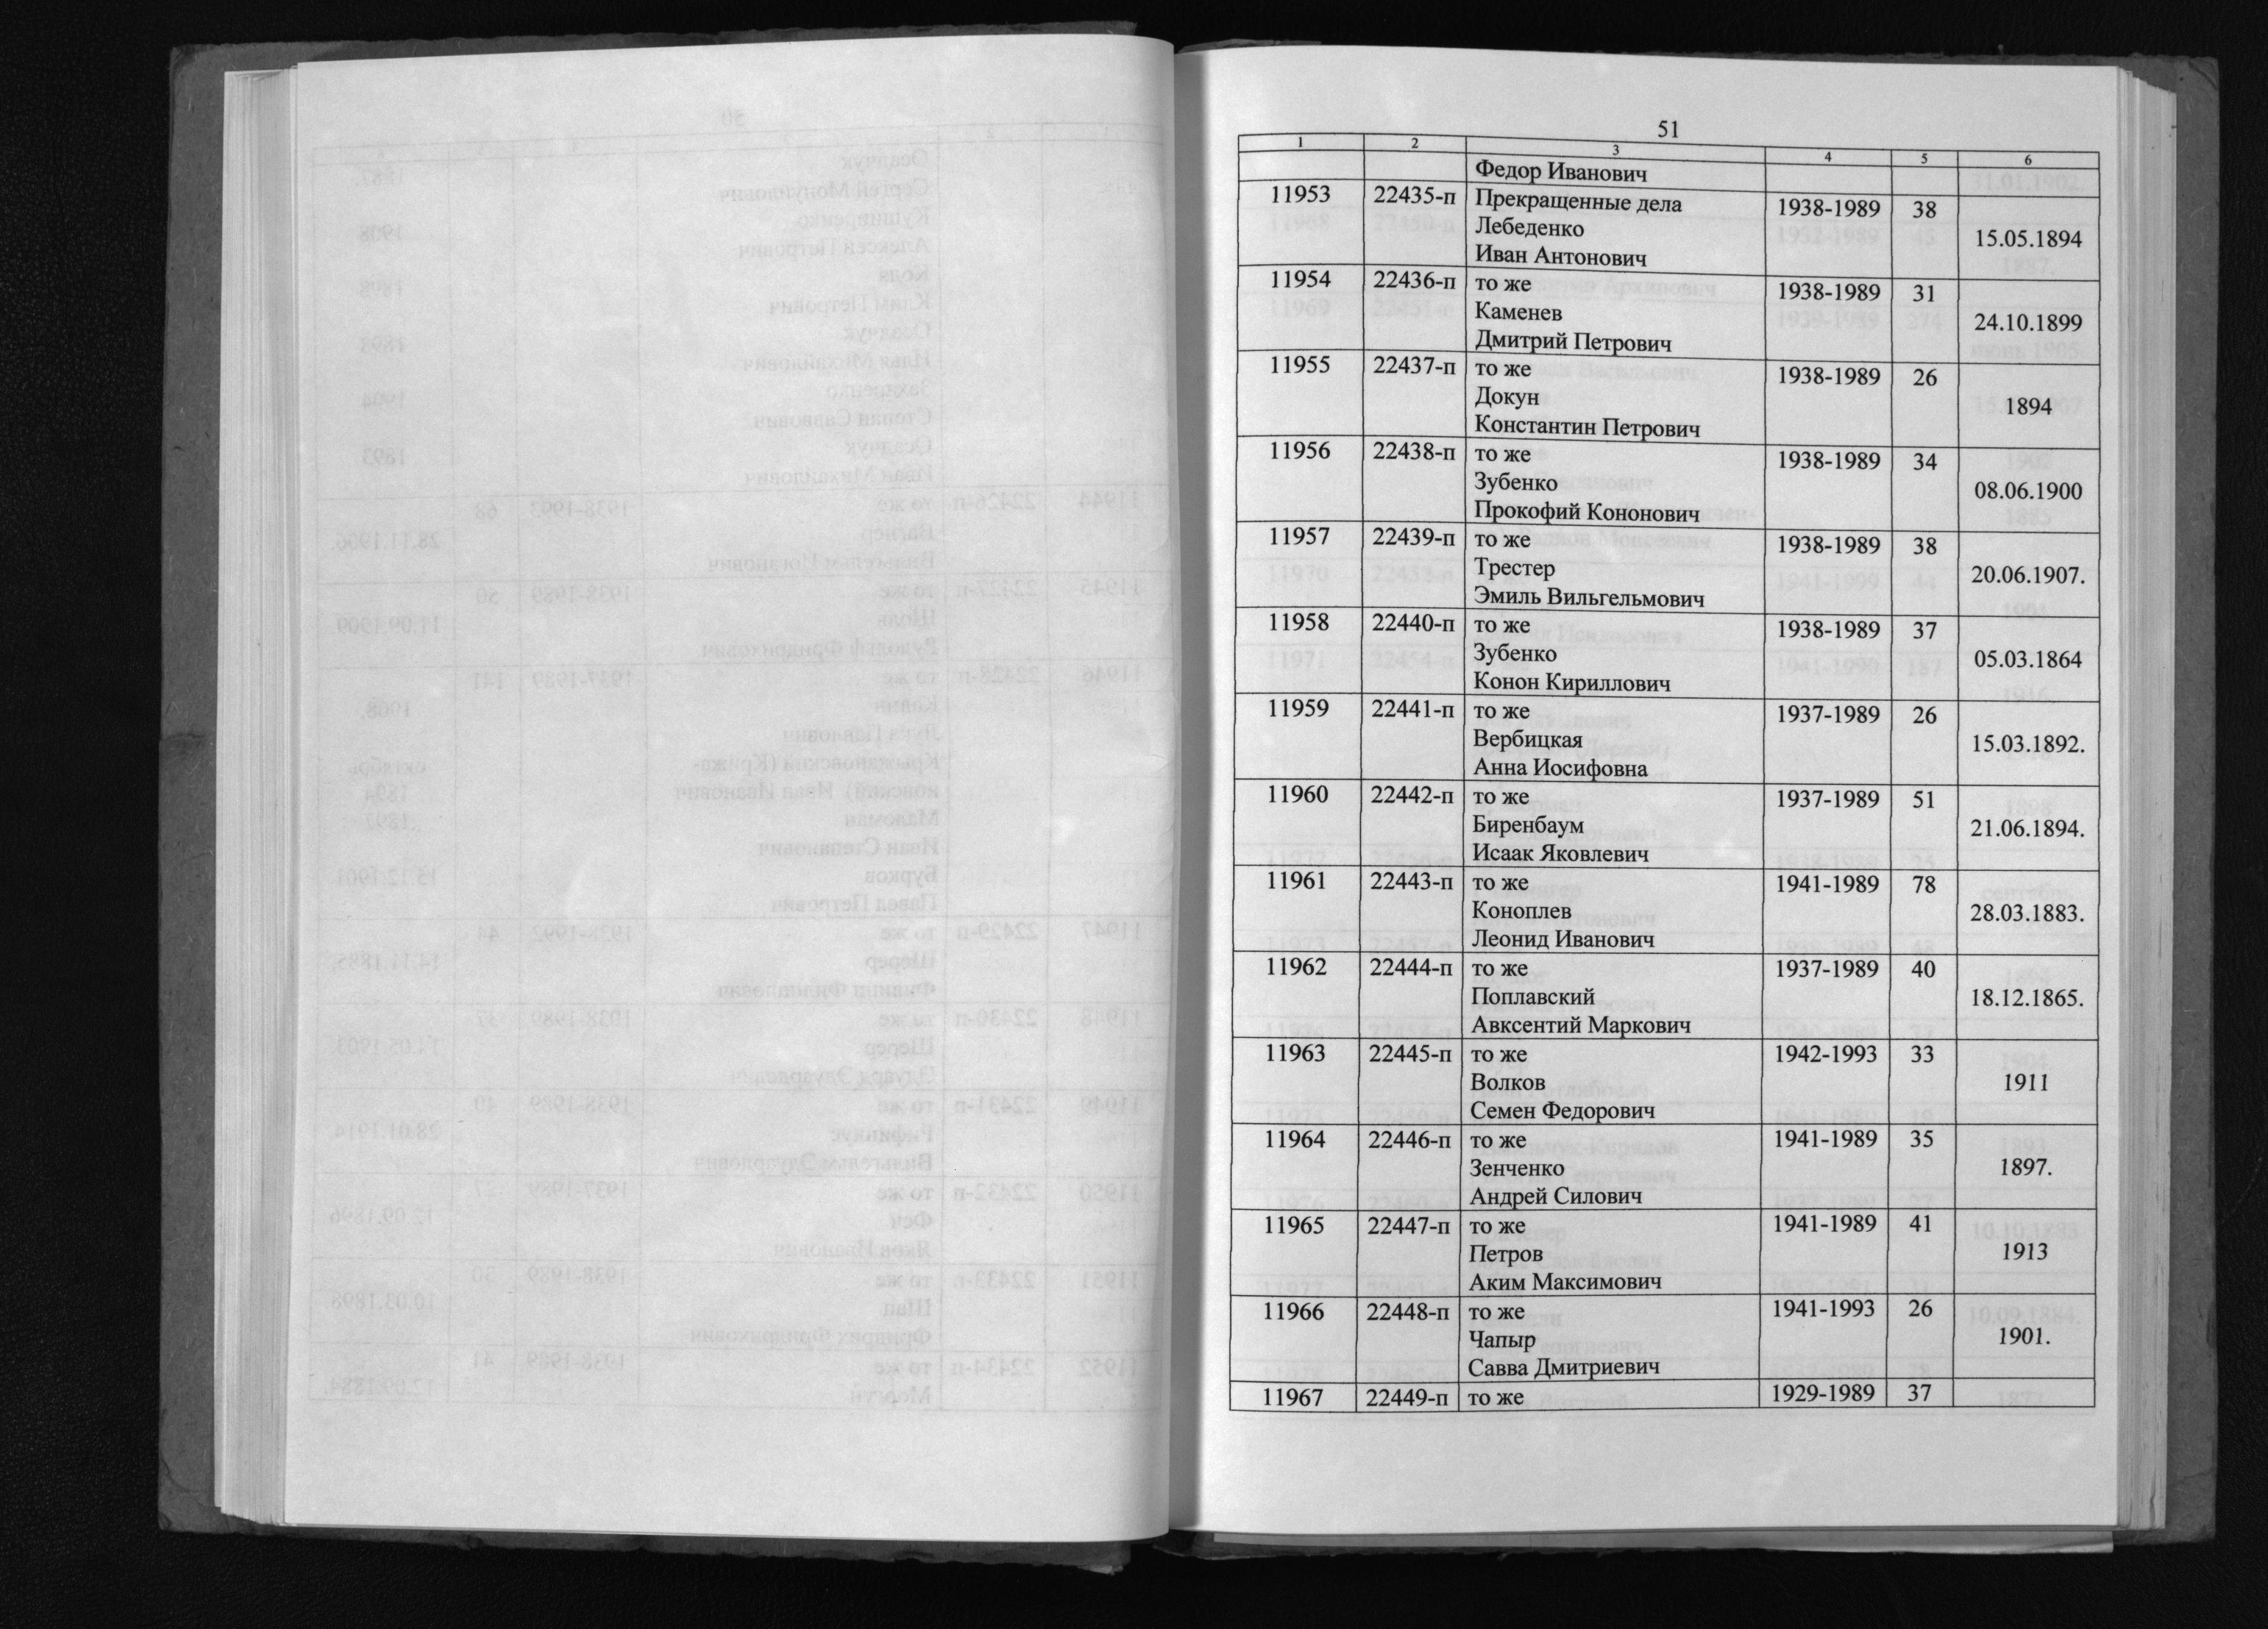 51
1 2 3 4 5 6
Федор Иванович
11953 22435-п Прекращенные дела 1938-1989 38
Лебеденко 15.05.1894
Иван Антонович
11954 22436-п то же 1938-1989 31
Каменев 24.10.1899
Дмитрий Петрович
11955 22437-п то же 1938-1989 26
Докун 1894
Константин Петрович
11956 22438-п то же 1938-1989 34
Зубенко 08.06.1900
Прокофий Кононович
11957 22439-п то же 1938-1989 38
Трестер 20.06.1907.
Эмиль Вильгельмович
11958 22440-п то же 1938-1989 37
Зубенко 05.03.1864
Конон Кириллович
11959 22441-п то же 1937-1989 26
Вербицкая 15.03.1892.
Анна Иосифовна
11960 22442-п то же 1937-1989 51
Биренбаум 21.06.1894.
Исаак Яковлевич
11961 22443-п то же 1941-1989 78
Коноплев 28.03.1883.
Леонид Иванович
11962 22444-п то же 1937-1989 40
Поплавский 18.12.1865.
Авксентий Маркович
11963 22445-п то же 1942-1993 33
Волков 1911
Семен Федорович
11964 22446-п то же 1941-1989 35
Зенченко 1897.
Андрей Силович
11965 22447-п то же 1941-1989 41
Петров 1913
Аким Максимович
11966 22448-п то же 1941-1993 26
Чапыр 1901.
Савва Дмитриевич
11967 22449-п то же 1929-1989 37